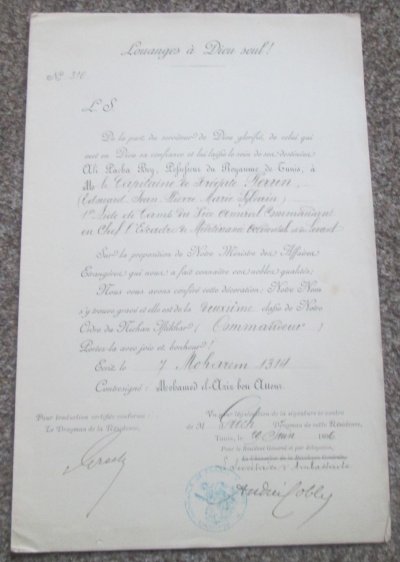 Louanges à Dieu seul!
No 310
L S
De la part du serviteur de Dieu glorifié, de celui qui
met en Dieu sa confiance et lui laisse le soin de ses destinées
Ali Pacha Bey, Possesseur du Royaume de Tunis, à
Mr le Capitaine de Frégate Perrin
(Edouard Jean Pierre Marie Sylvain)
1er Aide de Camp du Vice Amiral Commandant
en Chef l'Escadre de Méditerranée Occidentale et du Levant
Sur la proposition de Notre Ministre des Affaires
Etrangères qui nous a fait connaître vos nobles qualités;
Nous vous avons conféré cette décoration; Notre Nom
s'y trouve gravé et elle est de la deuxième classe de Notre
Ordre du Nichan Iftikhar (Commandeur)
Portez-la avec joie et bonheur!
Ecrit le 7 Moharem 1314
Contresigné: Mohamed el-Aziz bou Attour
Pour traduction certifiée conforme:
Le Drogman de la Résidence,
Vu pour légalisation de la signature ci-contre
de M. Drogman de cette Résidence,
Tunis, le 20 Juin 1896
Pour le Résident Général et par délégation,
Le Chancelier de la Résidence Générale
Le Secrétaire d'Ambassade